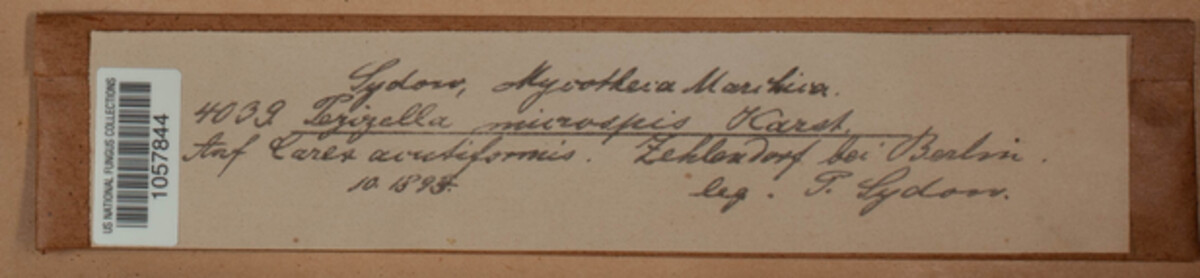 Sydow, Mycotheca Marchica.
4039 Pezizella microspis Karst.
Auf Carex acutiformis. Zehlendorf bei Berlin.
10. 1893.
leg. P. Sydow.
US NATIONAL FUNGUS COLLECTIONS
1057844